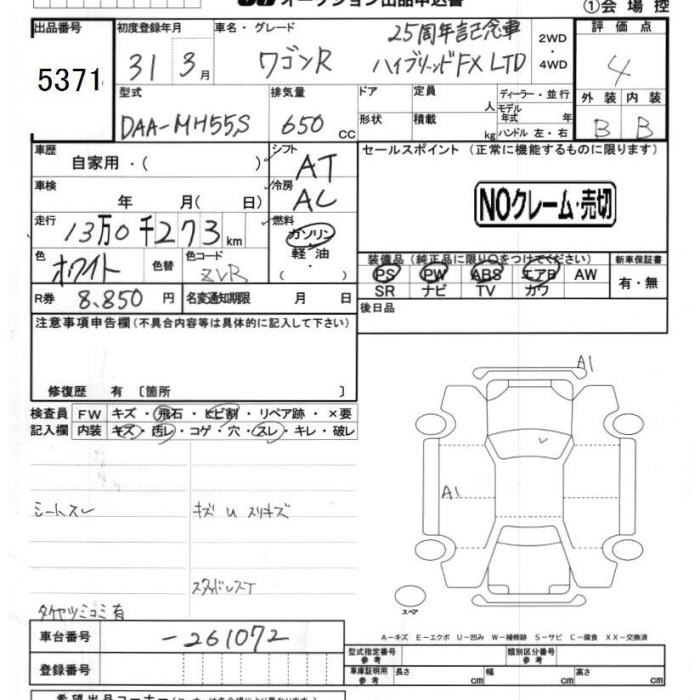 オークション出品申込書 ①会場控
出品番号 5371
初度登録年月 31 3月
車名・グレード ワゴンR 25周年記念車
ハイブリッドFX LTD
2WD・4WD
評価点 4
外装 内装
B B
型式 DAA-MH55S
排気量 650 cc
ドア 形状
定員 人
積載 kg
ディーラー・並行
モデル年式 年
ハンドル 左・右
車歴 自家用・( )
シフト AT
車検 年 月( 日)
冷房 AC
走行 13万0千273km
燃料 ガソリン・軽油・( )
色 ホワイト 色替
色コード ZVR
R券 8,850円
名変通知期限 月 日
セールスポイント (正常に機能するものに限ります)
NOクレーム・売切
装備品(純正品に限り○をつけてください)
PS PW ABS エアB AW
SR ナビ TV カワ
新車保証書 有・無
後日品
注意事項申告欄(不具合内容等は具体的に記入して下さい)
修復歴 有 〔箇所 〕
検査員記入欄
FW キズ・飛石・ヒビ割・リペア跡・×要
内装 キズ・汚レ・コゲ・穴・スレ・キレ・破レ
シートスレ
キズ U スリキズ
スタッドレスT
タイヤツミコミ有
A1
A1
スペア
A-キズ E-エクボ U-凹み W-補修跡 S-サビ C-腐食 XX-交換済
車台番号 -261072
登録番号
型式指定番号 参考
類別区分番号 参考
車庫証明用 参考 長さ cm 幅 cm 高さ cm